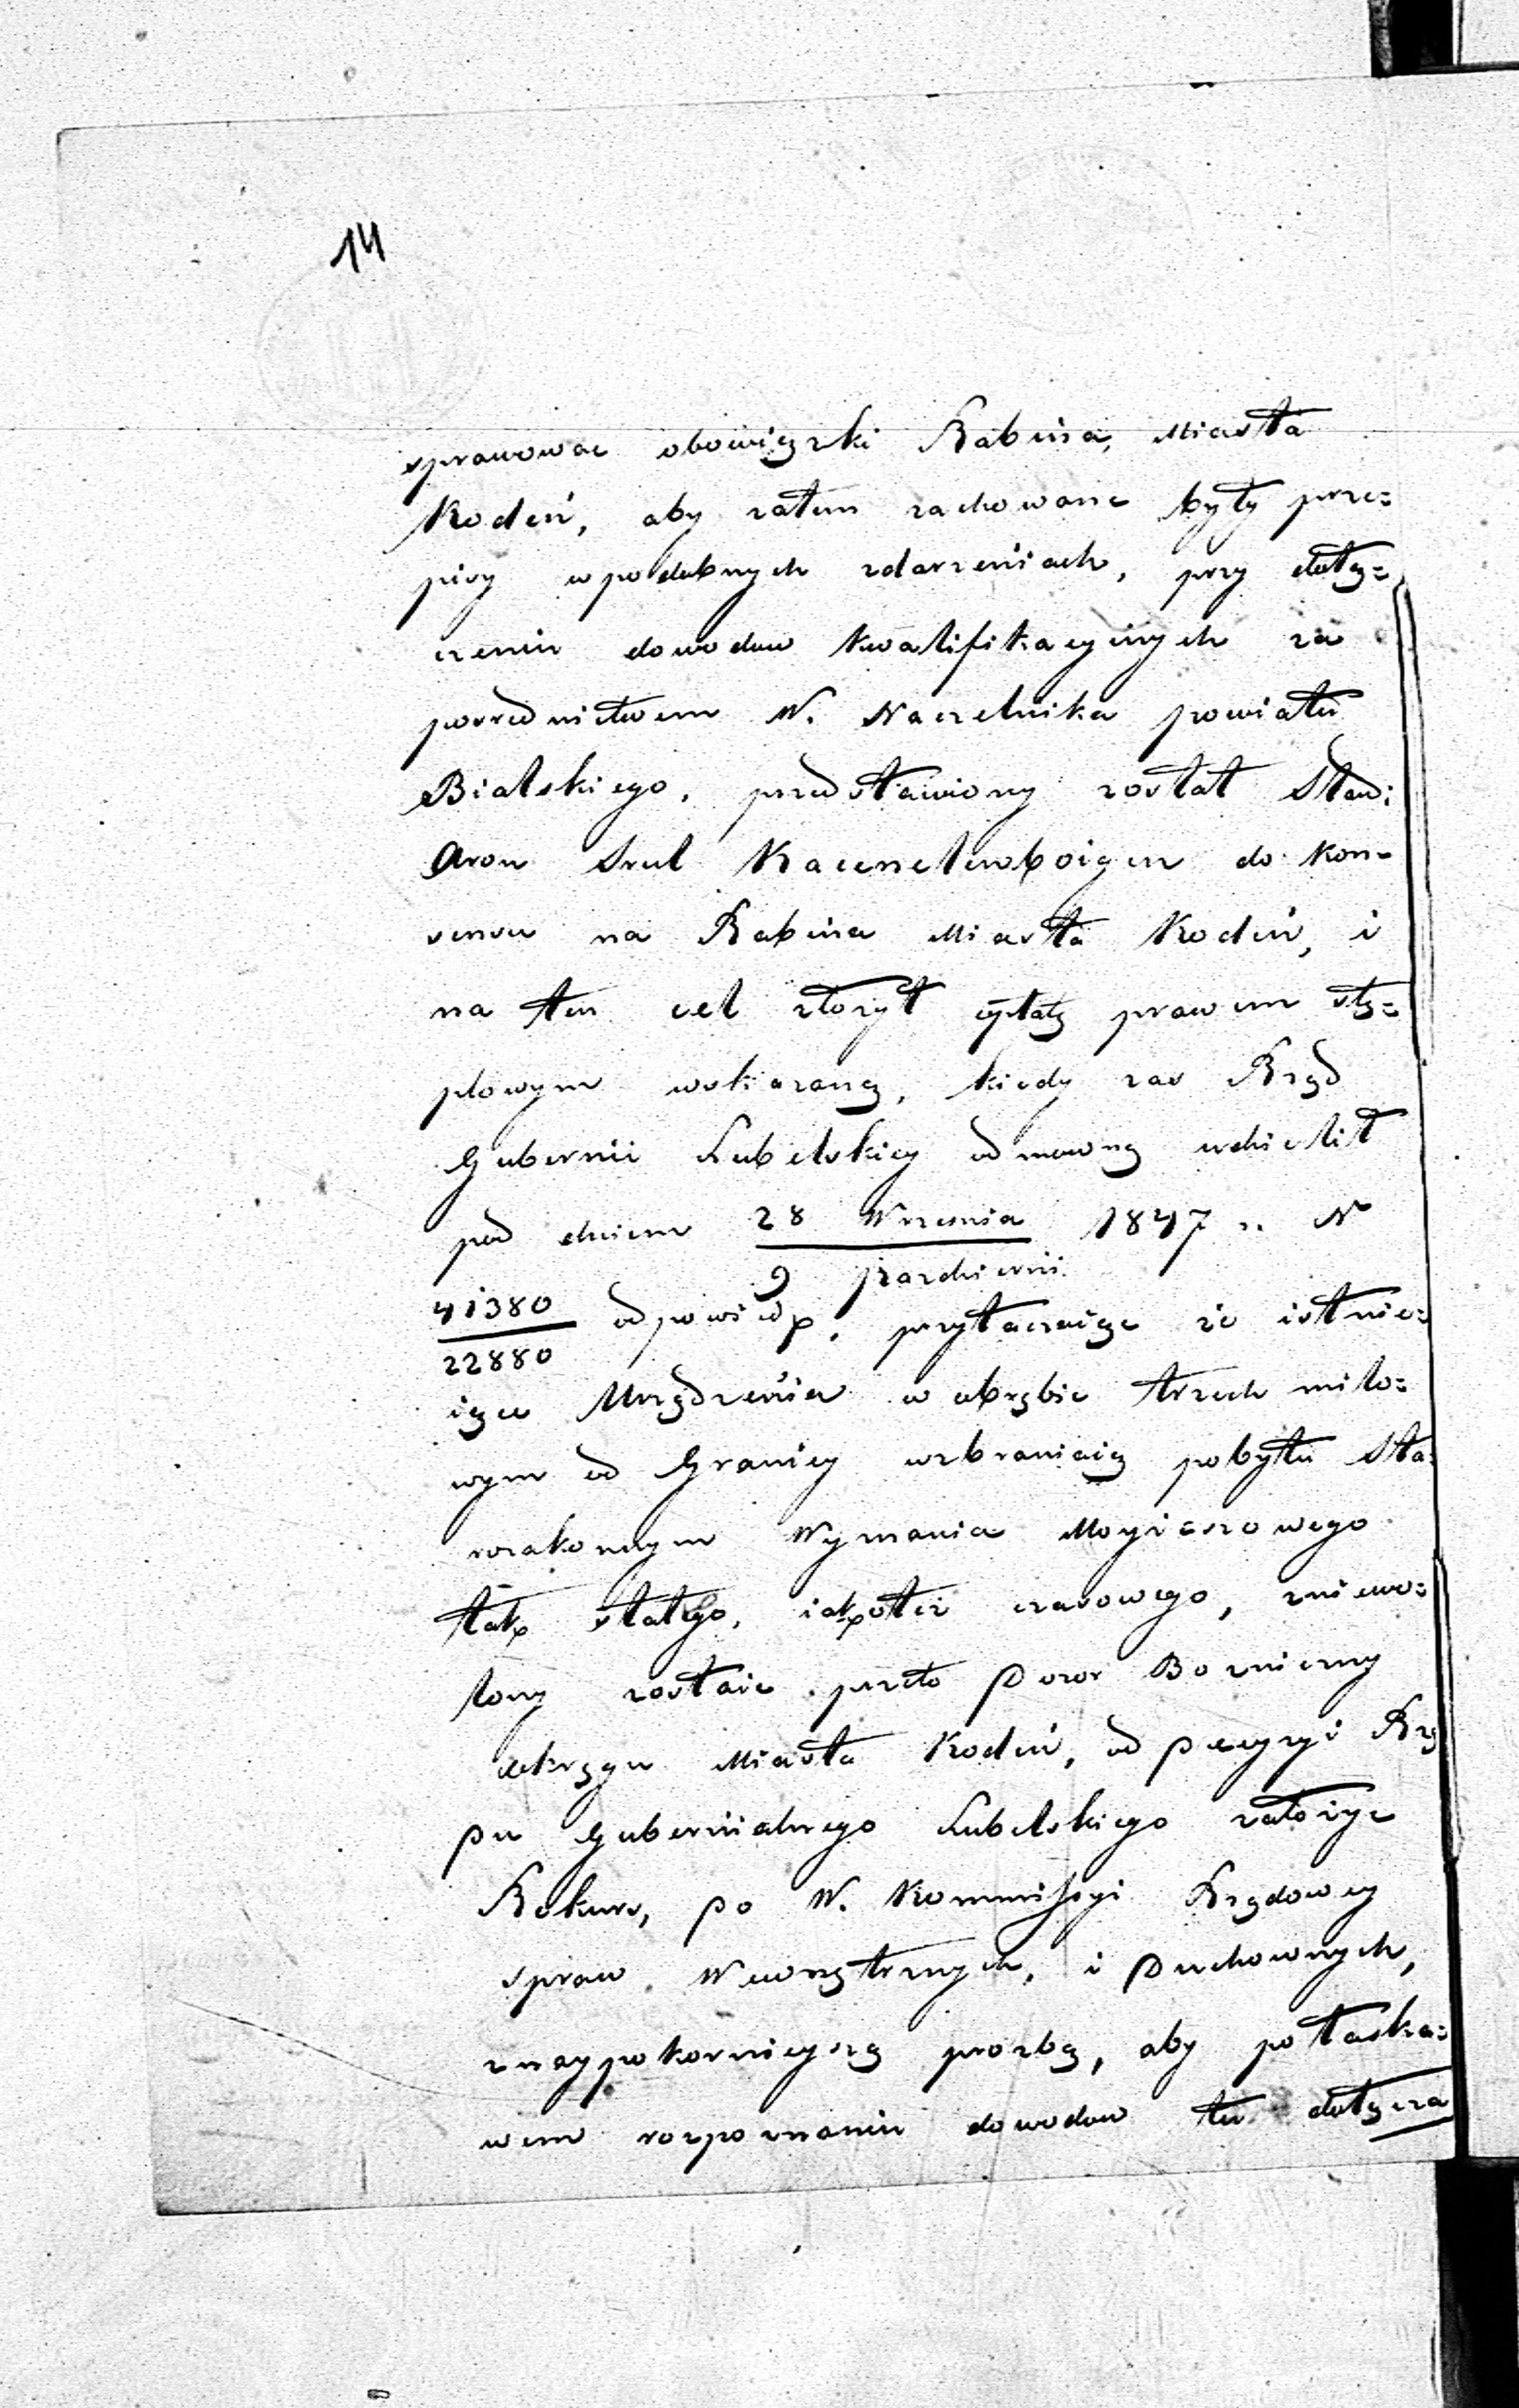 14
sprawowac obowiązki Rabina, Miasta
Kodeń, aby zatem zachowane były prze=
pisy w podobnych zdarzeniach, przy dołą=
czeniu dowodow kwalifikacyinych za
posrednictwem W. Naczelnika powiatu
Bialskiego, przedstawiony został Staro:
Aron Srul Kacenelenboigen do kon=
sensu na Rabina Miasta Kodeń, i
na ten cel złożył opłatę prawem stę=
plowym wskazaną, kiedy zas Rząd
Gubernii Lubelskiey odmowną udzielił
pod dniem 28 Wrzesnia / 9 pazdzierni 1847 r. No
41380 / 22880 odpowiedz, przytaczaiąc że istnie=
iące Urządzenia w obrębie trzech milo=
wym od Granicy wzbraniaią pobytu Sta=
rozakonnym Wyznania Moyżeszowego
tak stałego, iakoteż czasowego, zniewo=
lony zostaie przeto Dozor Bozniczny
okręgu Miasta Kodeń, od Decyzyi Rzą
du Gubernialnego Lubelskiego założyc
Rekurs, do W. Kommissyi Rządowey
spraw Wewnętrznych, i Duchownych,
z naypokornieyszą prozbą, aby po łaska=
wem rozpoznaniu dowodow tu dołącza